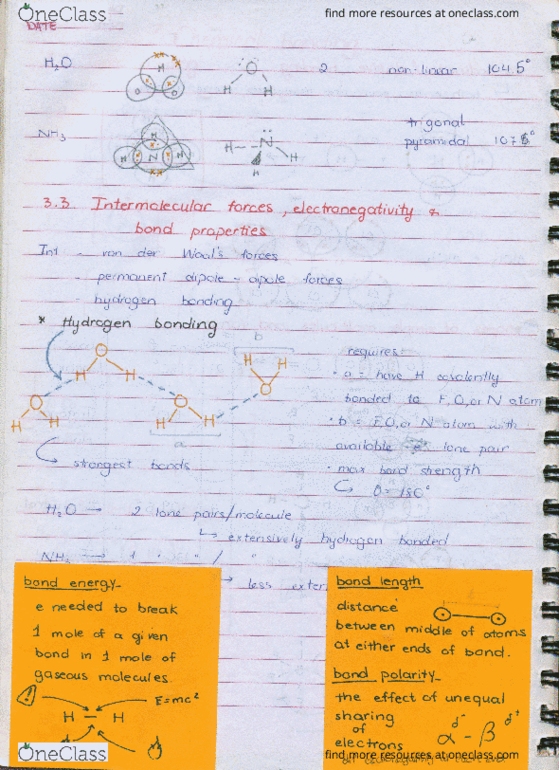 OneClass
find more resources at oneclass.com
DATE
H₂O
H
O
O
O
H
H
2
non-linear
104.5°
NH₃
H
H
N
H
H
N
H
H
trigonal
pyramidal 107°
3.3. Intermolecular forces, electronegativity &
bond properties
Int - van der Waal's forces
- permanent dipole - dipole forces
- hydrogen bonding
* Hydrogen bonding
b
O
H
H
H
H
O
O
H
H
O
H
H
a
requires:
• a = have H covalently
bonded to F, O, or N atom
• b = F, O, or N atom with
available e⁻ lone pair
• max bond strength
θ = 180°
strongest bonds
H₂O → 2 lone pairs/molecule
↳ extensively hydrogen bonded
NH₃ → 1 " " / "
→ less exten
bond energy-
e needed to break
1 mole of a given
bond in 1 mole of
gaseous molecules.
E=mc²
H - H
bond length
distance
between middle of atoms
at either ends of bond.
bond polarity-
the effect of unequal
sharing
of
electrons
δ⁻ δ⁺
α - β
OneClass
find more resources at oneclass.com